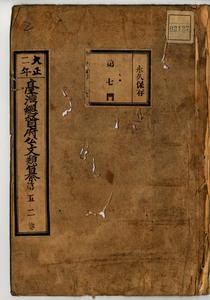 永久保存
第七門
大正二年
臺灣總督府公文類纂
五二